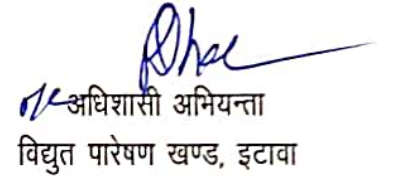 अधिशासी अभियन्ता
विद्युत पारेषण खण्ड, इटावा